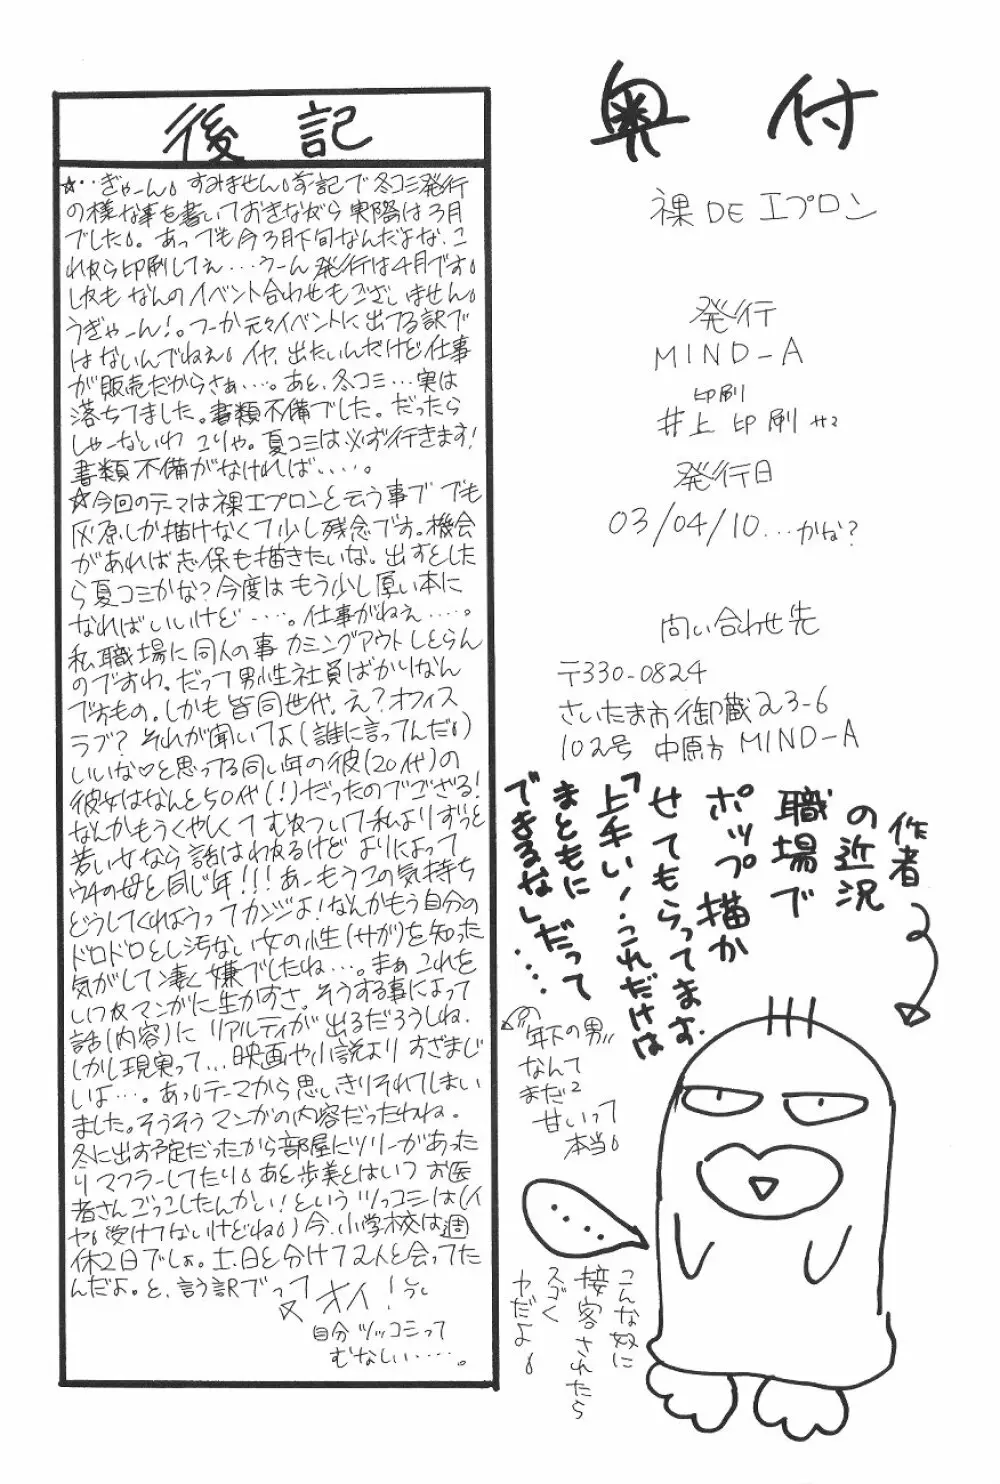 後記
☆‥ぎゃーん。すみません。前記で冬コミ発行
の様な事を書いておきながら実際は3月
でした。あっでも今3月下旬なんだよな、こ
れから印刷してぇ…うーん発行は4月です。
しかも なんのイベント合わせもございません。
うぎゃーん!。つーか元々イベントに出てる訳で
はないんでねぇ。イヤ、出たいんだけど仕事
が販売だからさぁ…。あと、冬コミ…実は
落ちてました。書類不備でした。だったら
しゃーないわ こりゃ。夏コミは必ず行きます!
書類不備がなければ‥‥。
☆今回のテーマは裸エプロンと云う事で でも
灰原しか描けなくて少し残念です。機会
があれば志保も描きたいな。出すとした
ら夏コミかな?今度はもう少し厚い本に
なればいいけど‥‥。仕事がねぇ‥‥。
私職場に同人の事 カミングアウトしとらん
のですわ。だって男性社員ばかりなん
でおもの。しかも皆同世代。え?オフィス
ラブ?それが聞いてよ(誰に言ってんだ。)
いいな♡と思ってる同い年の彼(20代)の
彼女はなんと50代(!)だったのでござる!
なんかもうくやしくて むねついて私よりずっと
若い女なら話はわかるけど よりによって
ウチの母と同じ年!!!あーもうこの気持ち
どうしてくれようってカンジよ!なんかもう自分の
ドロドロとし汚ない女の性(サガ)を知った
気がして凄く嫌でしたね…。まぁこれを
しつかマンガに生かすさ。そうする事によって
話(内容)に リアルティが出るだろうしね。
しかし現実って…映画や小説よりすざまじ
いよ…。あっ。テーマから思いきりそれてしまい
ました。そうそうマンガの内容だったわね。
冬に出す予定だったから部屋にツリーがあった
りマフラーしてたり。あと歩美とはいつ お医
者さんごっこしたんかい!というツッコミは(イ
ヤ。受けてないけどね。)今、小学校は週
休2日でしょ。土、日と分けて2人と会ってた
んだよ。と、言う訳でって オイ!
自分 ツッコミって
むなしい‥‥。
奥付
裸DEエプロン
発行
MIND-A
印刷
井上印刷サマ
発行日
03/04/10…かな?
問い合わせ先
〒330-0824
さいたま市御蔵23-6
102号 中原方 MIND-A
作者
の近況
職場で
ポップ描か
せてもらってます。
「上手い!これだけは
まともに
できるな」だって
‥‥
年下の男
なんて
まだ2
甘いって
本当。
‥‥
こんな奴に
接客されたら
スゴく
ヤだよ。